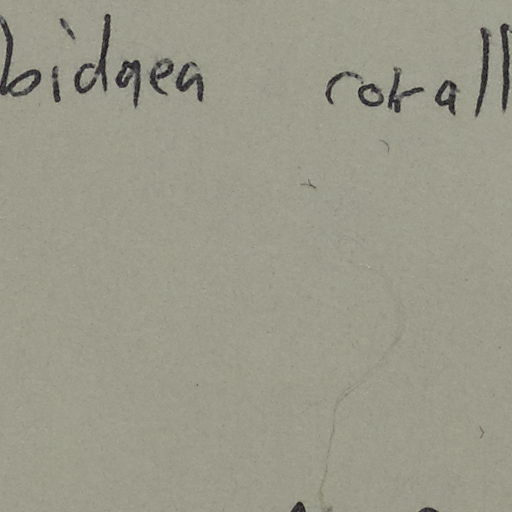 bidaea corall